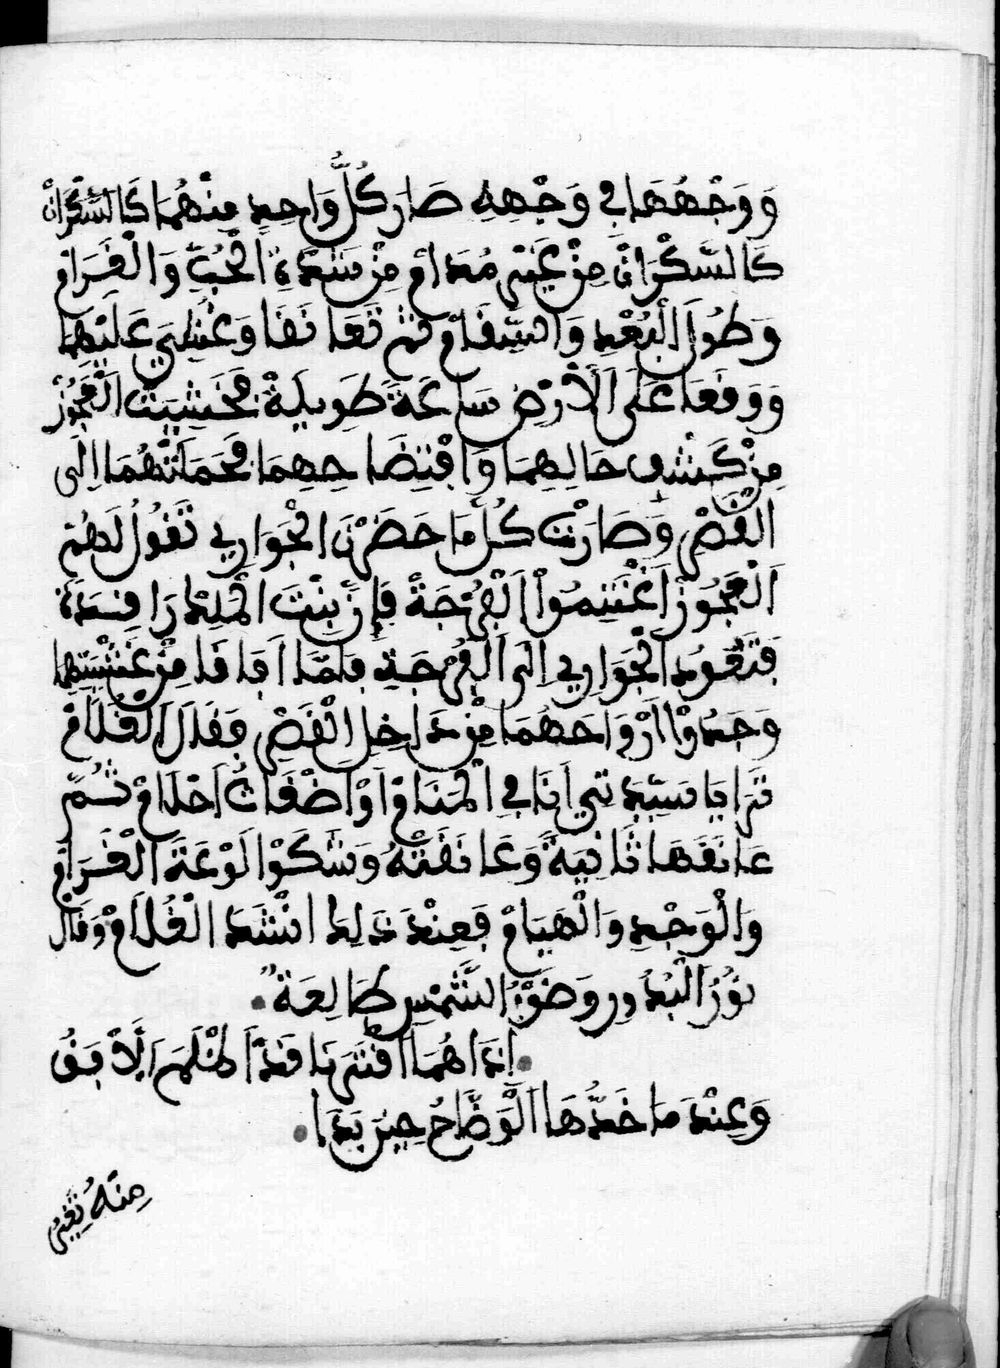 وَوَجْهُهَا فِي وَجْهِهِ صَارَ كُلُّ وَاحِدٍ مِنْهُمَا كَالسَّكْرَانْ
كَالسَّكْرَانْ مِنْ غَيْرِ مُدَامْ مِنْ شِدَّةِ الْحُبِّ وَالْفِرَاقْ
وَطُولِ الْبُعْدِ وَالسِّقَامْ ثُمَّ تَعَانَقَا وَغُشِيَ عَلَيْهِمَا
وَوَقَعَا عَلَى الْأَرْضِ سَاعَةً طَوِيلَةْ فَخَشِيَتْ الْعَجُوزْ
مِنْ كَشْفِ حَالِهِمَا وَافْتِضَاحِهِمَا فَحَمَلَتْهُمَا إِلَى
الْقَصْرِ وَصَارَتْ كُلَّ مَا حَضَرْنَ الْجَوَارِي تَقُولُ لَهُمْ
الْعَجُوزْ اغْتَنِمُوْا الْفُرْجَةْ فَإِنَّ بِنْتَ الْمَلِكْ رَاقِدَةْ
فَتَعُودُ الْجَوَارِي إِلَى الْفُرْجَةِ فَلَمَّا أَفَاقَا مِنْ غَشْيَتِهِمَا
وَجَدُوْا أَرْوَاحَهُمَا مِنْ دَاخِلِ الْقَصْرِ فَقَالَ الْغُلَامْ
تَرَا يَا سِيدَتِي أَنَا فِي الْمَنَامْ أَوْ أَضْغَاثُ أَحْلَامْ ثُمَّ
عَانَقَهَا ثَانِيَةً وَعَانَقَتْهُ وَشَكَوْا لَوْعَةَ الْفِرَاقْ
وَالْوَجْدِ وَالْهِيَامْ فَعِنْدَ ذَلِكَ انْشَدَ الْغُلَامْ وَقَالْ
نُورُ الْبُدُورِ وَضَوْءُ الشَّمْسِ طَالِعَةْ
إِذَا هُمَا افْتَرَقَا قَدْ أَظْلَمَ الْأُفُقُ
وَعِنْدَمَا خَدُّهَا الْوَضَّاحُ حِينَ بَدَا
مِنْهُ